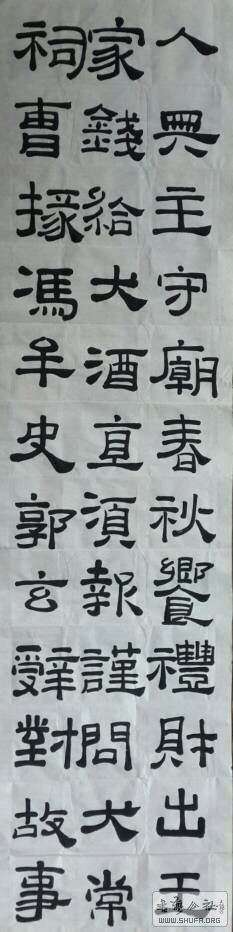 人典主守廟春秋饗禮財出王
家錢給犬酒直須報謹問大常
祠曹掾馮牟史郭玄辭對故事
WWW.SHUFA.ORG